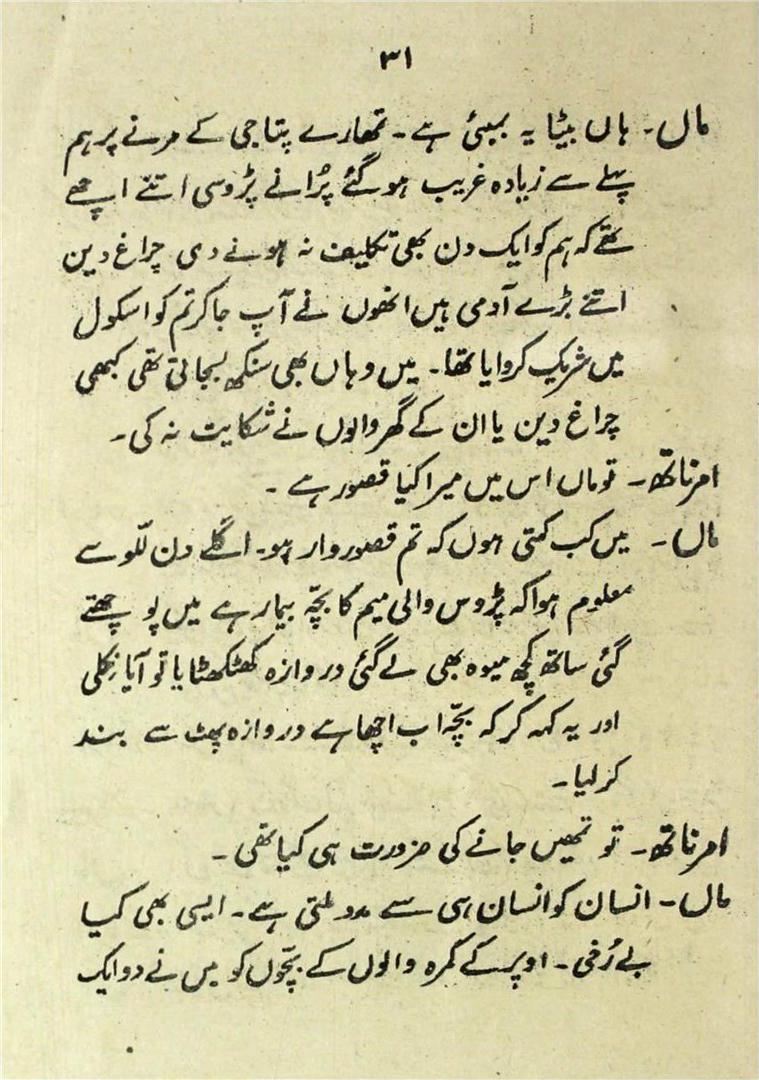 ۳۱
ماں۔ ہاں بیٹا یہ بمبئی ہے۔ تمھارے پتا جی کے مرنے پر ہم
پہلے سے زیادہ غریب ہو گئے پُرانے پڑوسی اتنے اچھے
تھے کہ ہم کو ایک دن بھی تکلیف نہ ہونے دی چراغ دین
اتنے بڑے آدمی ہیں انھوں نے آپ جا کر تم کو اسکول
میں شریک کروایا تھا۔ میں وہاں بھی سنکھ بجاتی تھی کبھی
چراغ دین یا ان کے گھر والوں نے شکایت نہ کی۔
امرناتھ۔ تو ماں اس میں میرا کیا قصور ہے ۔
ماں ۔ میں کب کہتی ہوں کہ تم قصوروار ہو۔ اگلے دن للّو سے
معلوم ہوا کہ پڑوس والی میم کا بچّہ بیمار ہے میں پوچھنے
گئی ساتھ کچھ میوہ بھی لے گئی دروازہ کھٹکھٹایا تو آیا نکلی
اور یہ کہہ کر کہ بچّہ اب اچھا ہے دروازہ پھٹ سے بند
کر لیا۔
امرناتھ۔ تو تمھیں جانے کی ضرورت ہی کیا تھی ۔
ماں۔ انسان کو انسان ہی سے مدد ملتی ہے۔ ایسی بھی کیا
بے رُخی ۔ اوپر کے کمرہ والوں کے بچّوں کو میں نے دو ایک